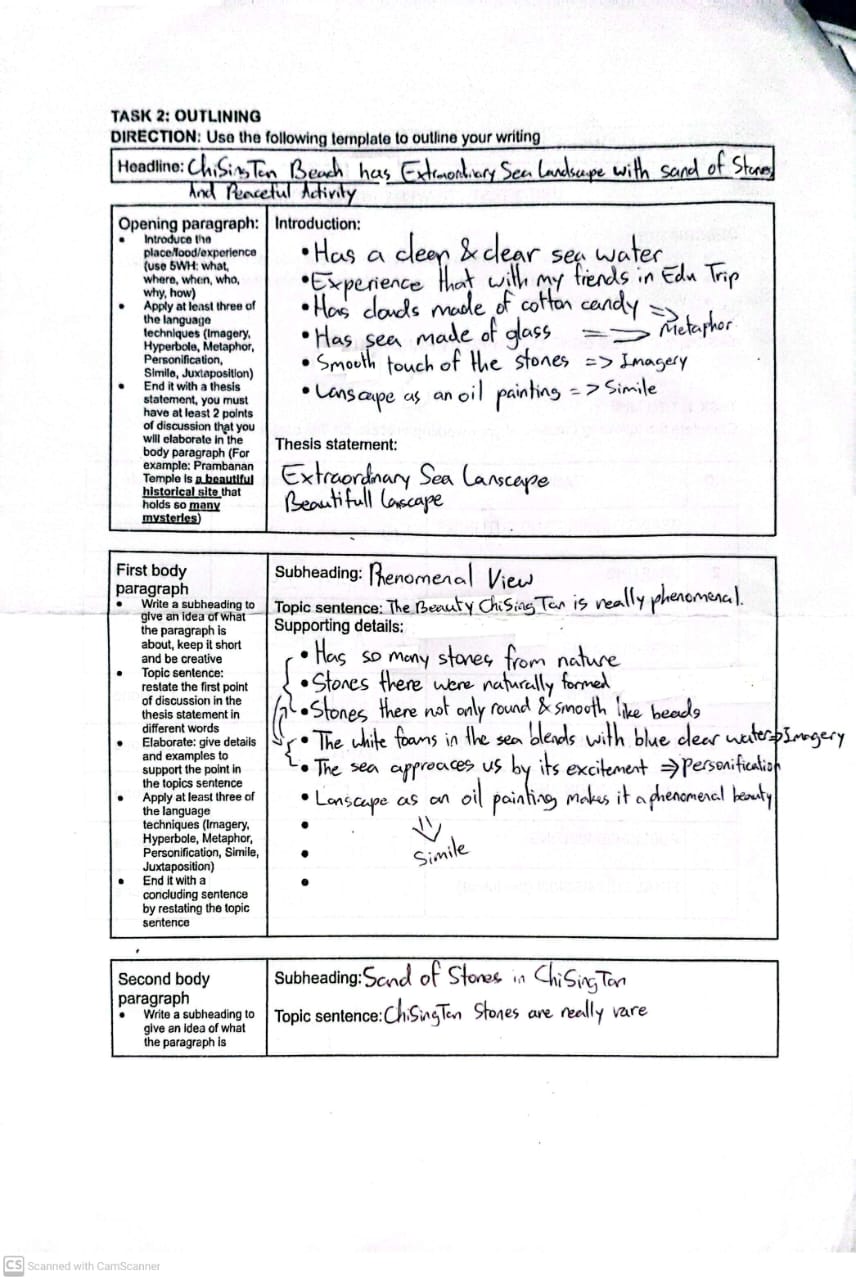 TASK 2: OUTLINING
DIRECTION: Use the following template to outline your writing
Headline: ChiSingTan Beach has Extraordiary Sea Landscape with sand of Stones
And Peaceful Activity
Opening paragraph:
• Introduce the
place/food/experience
(use 5WH: what,
where, when, who,
why, how)
• Apply at least three of
the language
techniques (Imagery,
Hyperbole, Metaphor,
Personification,
Simile, Juxtaposition)
• End it with a thesis
statement, you must
have at least 2 points
of discussion that you
will elaborate in the
body paragraph (For
example: Prambanan
Temple is a beautiful
historical site that
holds so many
mysteries)
Introduction:
• Has a clean & clear sea water
• Experience that with my fiends in Edu Trip
• Has clouds made of cotton candy =>
• Has sea made of glass => Metaphor
• Smooth touch of the stones => Imagery
• Lanscape as an oil painting => Simile
Thesis statement:
Extraordnary Sea Lanscape
Beautifull Lanscape
First body
paragraph
• Write a subheading to
give an idea of what
the paragraph is
about, keep it short
and be creative
• Topic sentence:
restate the first point
of discussion in the
thesis statement in
different words
• Elaborate: give details
and examples to
support the point in
the topics sentence
• Apply at least three of
the language
techniques (Imagery,
Hyperbole, Metaphor,
Personification, Simile,
Juxtaposition)
• End it with a
concluding sentence
by restating the topic
sentence
Subheading: Phenomenal View
Topic sentence: The Beauty ChiSingTan is really phenomenal.
Supporting details:
• Has so many stones from nature
• Stones there were naturally formed
• Stones there not only round & smooth like beads
• The white foams in the sea blends with blue clear water => Imagery
• The sea approaces us by its excitement => Personification
• Lanscape as an oil painting makes it a phenomenal beauty
Simile
Second body
paragraph
• Write a subheading to
give an idea of what
the paragraph is
Subheading: Sand of Stones in ChiSingTan
Topic sentence: ChiSingTan Stones are really rare
CS Scanned with CamScanner